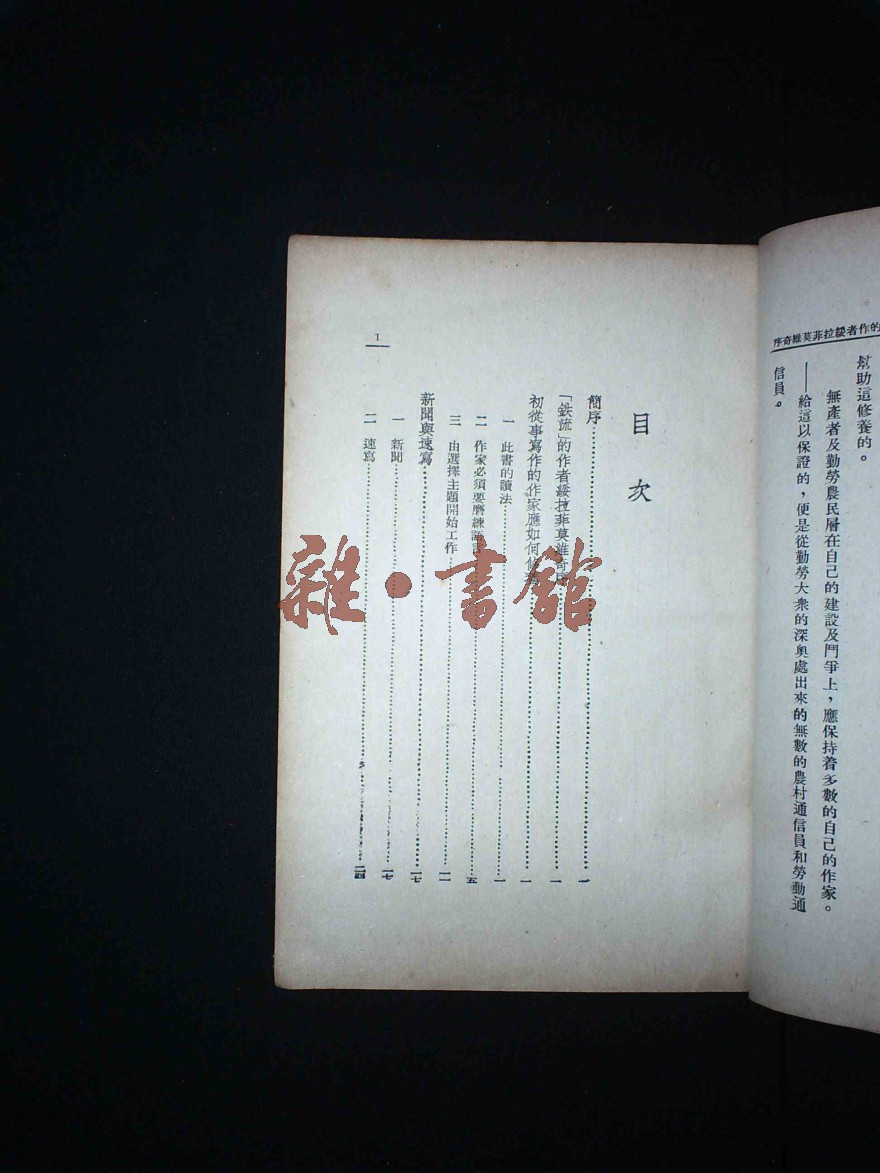 的作者綏拉菲莫維奇序
幫助這修養的。
無產者及勤勞農民層在自己的建設及鬥爭上，應保持着多數的自己的作家。
——給這以保證的，便是從勤勞大衆的深奧處出來的無數的農村通信員和勞動通
信員。
目次
簡序……一
「鉄流」的作者綏拉菲莫維奇序……一
初從事寫作的作家應如何修養……一
一 此書的讀法……一
二 作家必須要磨練語言……五
三 由選擇主題開始工作……一一
新聞與速寫……一七
一 新聞……一七
二 速寫……二四
1
雜·書館